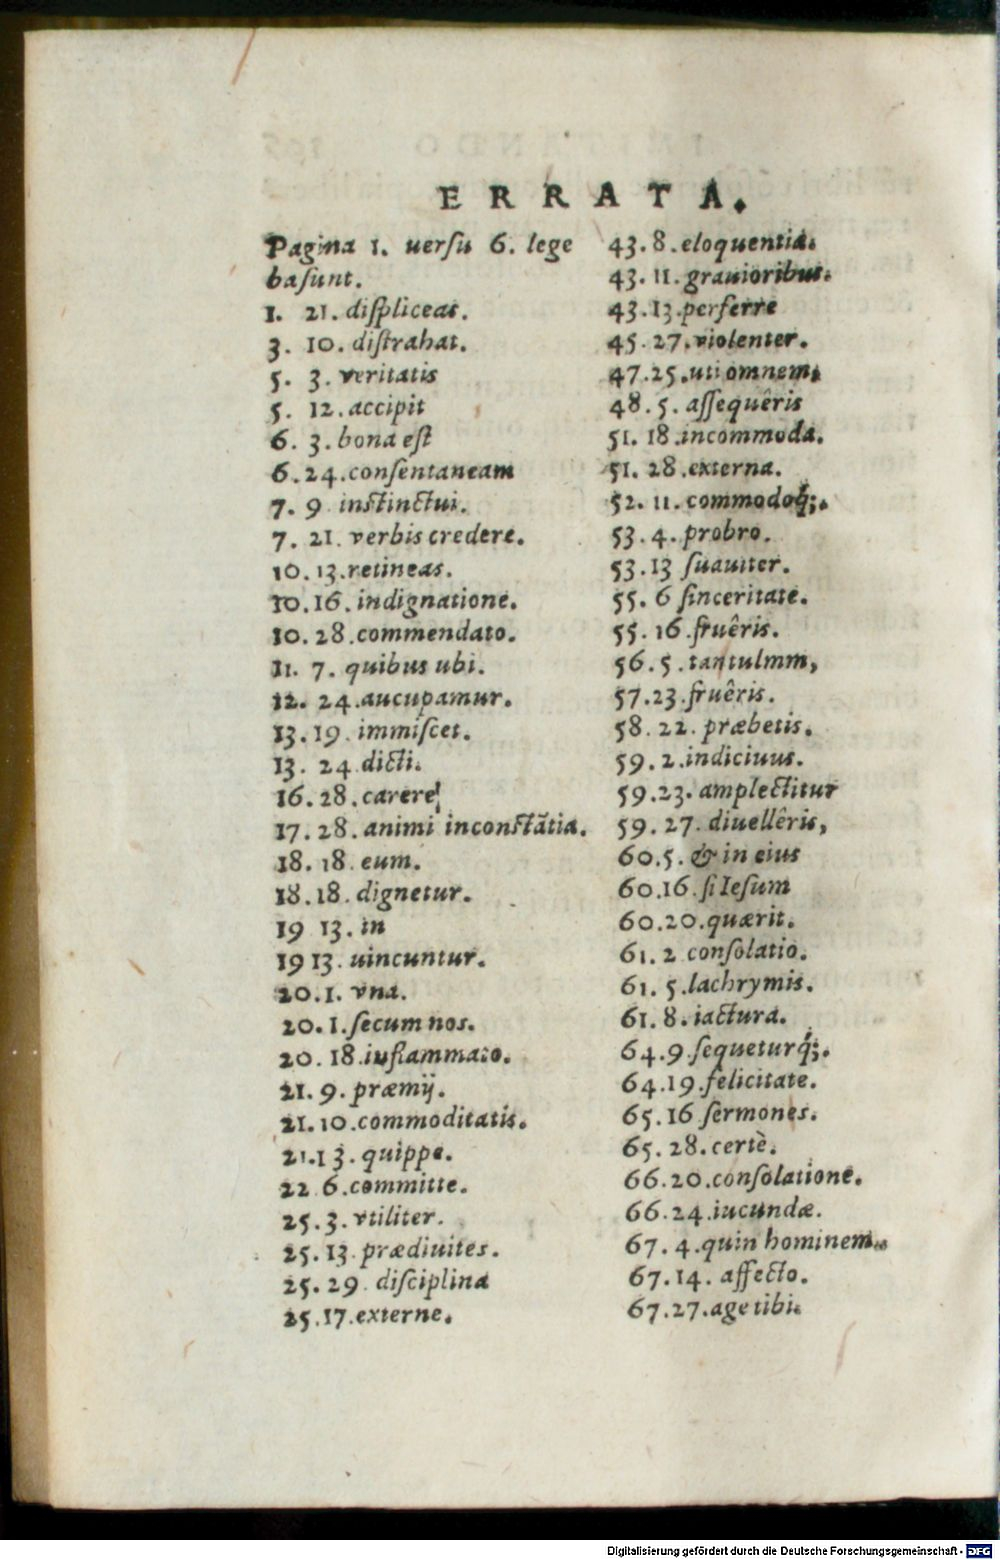 ERRATA.
Pagina 1. uersu 6. lege
basunt.
1. 21. displiceat.
3. 10. distrahat.
5. 3. veritatis
5. 12. accipit
6. 3. bona est
6. 24. consentaneam
7. 9 instinctui.
7. 21. verbis credere.
10. 13. retineas.
10. 16. indignatione.
10. 28. commendato.
11. 7. quibus ubi.
12. 24. aucupamur.
13. 19. immiscet.
13. 24 dicti.
16. 28. carere
17. 28. animi inconstãtia.
18. 18. eum.
18. 18. dignetur.
19 13. in
19 13. uincuntur.
20. 1. vna.
20. 1. secum nos.
20. 18. inflammato.
21. 9. præmij.
21. 10. commoditatis.
21. 13. quippe.
22 6. committe.
25. 3. vtiliter.
25. 13. prædiuites.
25. 29. disciplina
25. 17. externe.
43. 8. eloquentia.
43. 11. grauioribus.
43. 13. perferre
45. 27. violenter.
47. 25. uti omnem.
48. 5. assequêris
51. 18. incommoda.
51. 28. externa.
52. 11. commodoq́;.
53. 4. probro.
53. 13 suauiter.
55. 6 sinceritate.
55. 16. fruêris.
56. 5. tantulmm,
57. 23. fruêris.
58. 22. præbetis.
59. 2. indiciuus.
59. 23. amplectitur
59. 27. diuellêris,
60. 5. & in eius
60. 16. si Iesum
60. 20. quærit.
61. 2 consolatio.
61. 5. lachrymis.
61. 8. iactura.
64. 9. sequeturq́;.
64. 19. felicitate.
65. 16 sermones.
65. 28. certè.
66. 20. consolatione.
66. 24. iucundæ.
67. 4. quin hominem.
67. 14. affecto.
67. 27. age tibi.
Digitalisierung gefördert durch die Deutsche Forschungsgemeinschaft - DFG